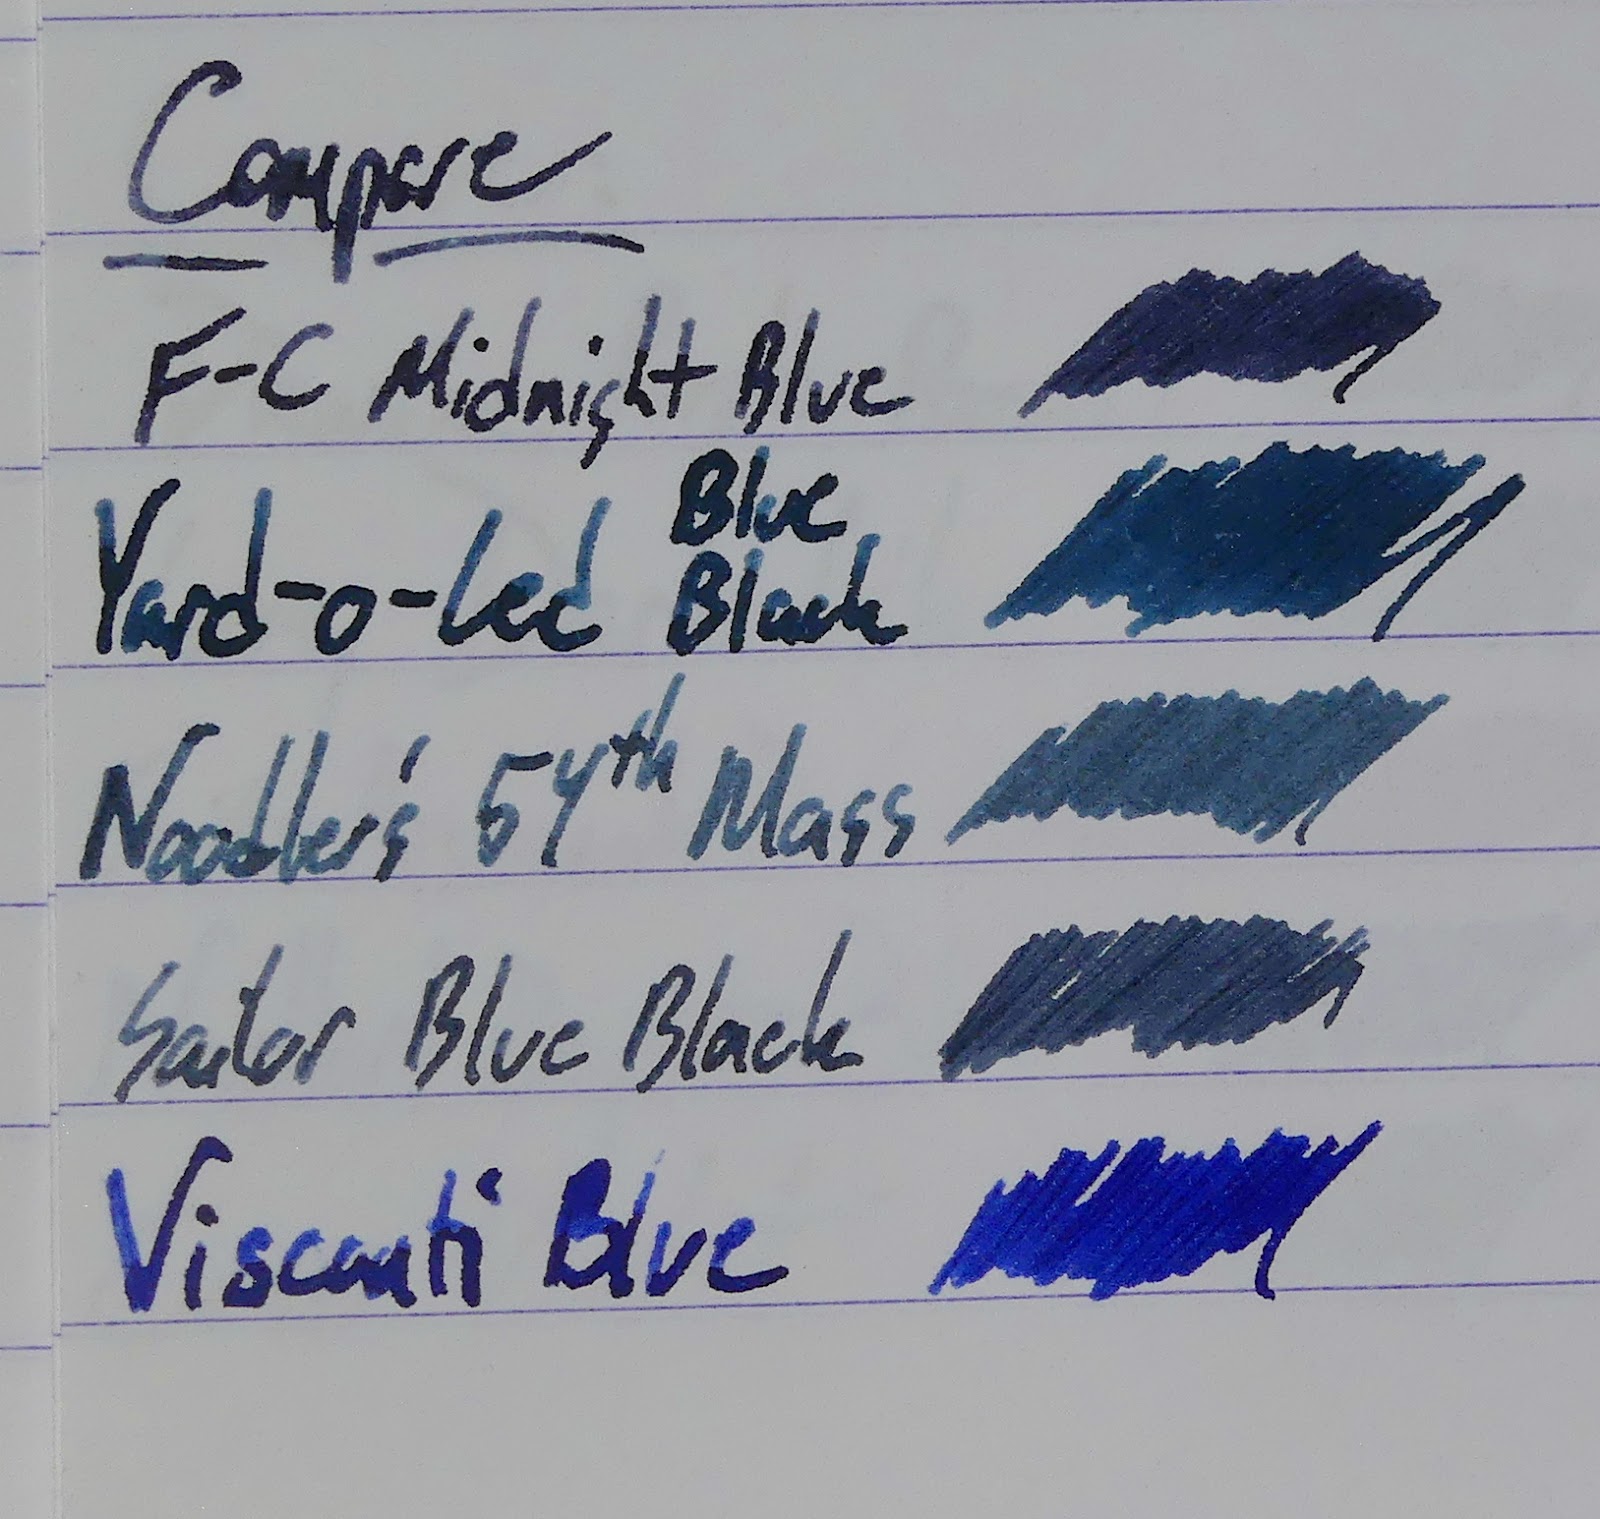 Compare
F-C Midnight Blue
Yard-o-Led Blue Black
Noodler's 54th Mass
Sailor Blue Black
Visconti Blue